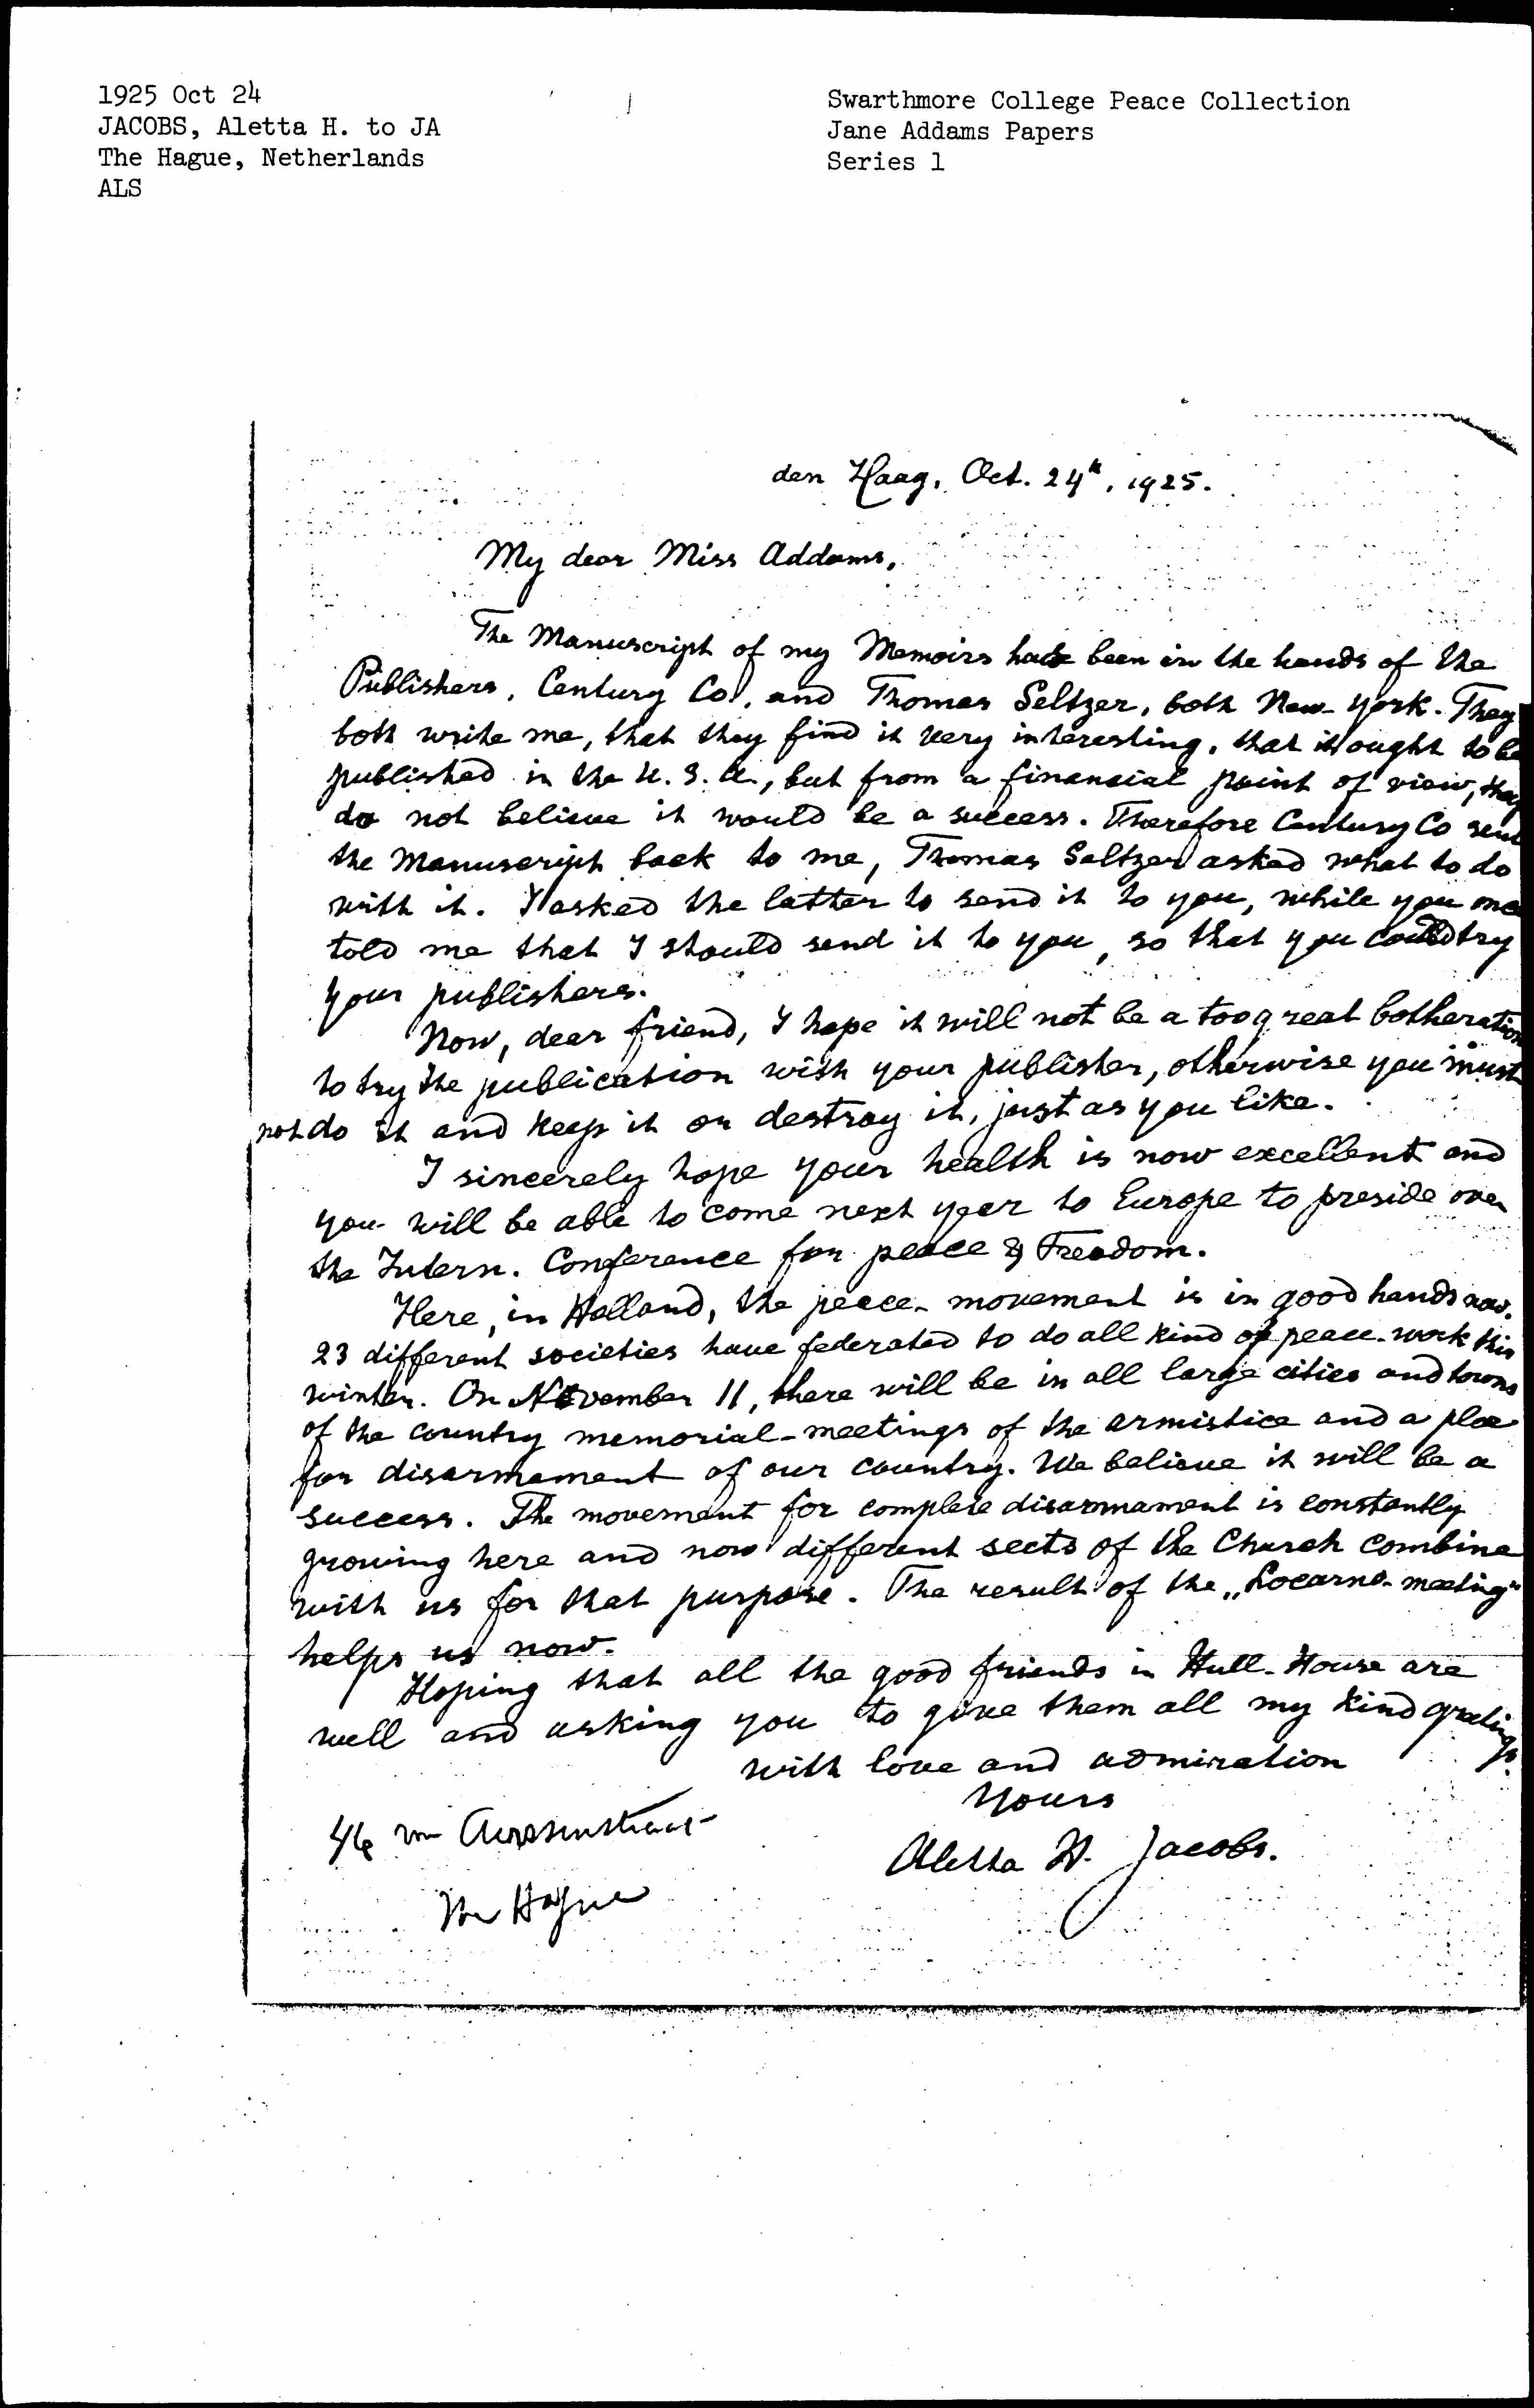 1925 Oct 24
JACOBS, Aletta H. to JA
The Hague, Netherlands
ALS
Swarthmore College Peace Collection
Jane Addams Papers
Series 1
den Haag, Oct. 24th, 1925.
My dear Miss Addams,
The Manuscript of my Memoirs has been in the hands of the
Publishers, Century Co., and Thomas Seltzer, both New-York. They
both write me, that they find it very interesting, that it ought to be
published in the U.S.A., but from a financial point of view, they
do not believe it would be a success. Therefore Century Co send
the Manuscript back to me, Thomas Seltzer asked what to do
with it. I asked the latter to send it to you, while you once
told me that I should send it to you, so that you could try
your publishers.
Now, dear friend, I hope it will not be a too great botheration
to try the publication with your publisher, otherwise you must
not do it and keep it or destroy it, just as you like.
I sincerely hope your health is now excellent and
you will be able to come next year to Europe to preside over
the Intern. Conference for peace & Freedom.
Here, in Holland, the peace-movement is in good hands now.
23 different societies have federated to do all kind of peace-work this
winter. On November 11, there will be in all large cities and towns
of the country memorial-meetings of the armistice and a plea
for disarmament of our country. We believe it will be a
success. The movement for complete disarmament is constantly
growing here and now different sects of the Church combine
with us for that purpose. The result of the „Locarno-meeting"
helps us now.
Hoping that all the good friends in Hull-House are
well and asking you to give them all my kind greetings.
with love and admiration
Yours
Aletta H. Jacobs.
46 van Aerssenstraat
The Hague